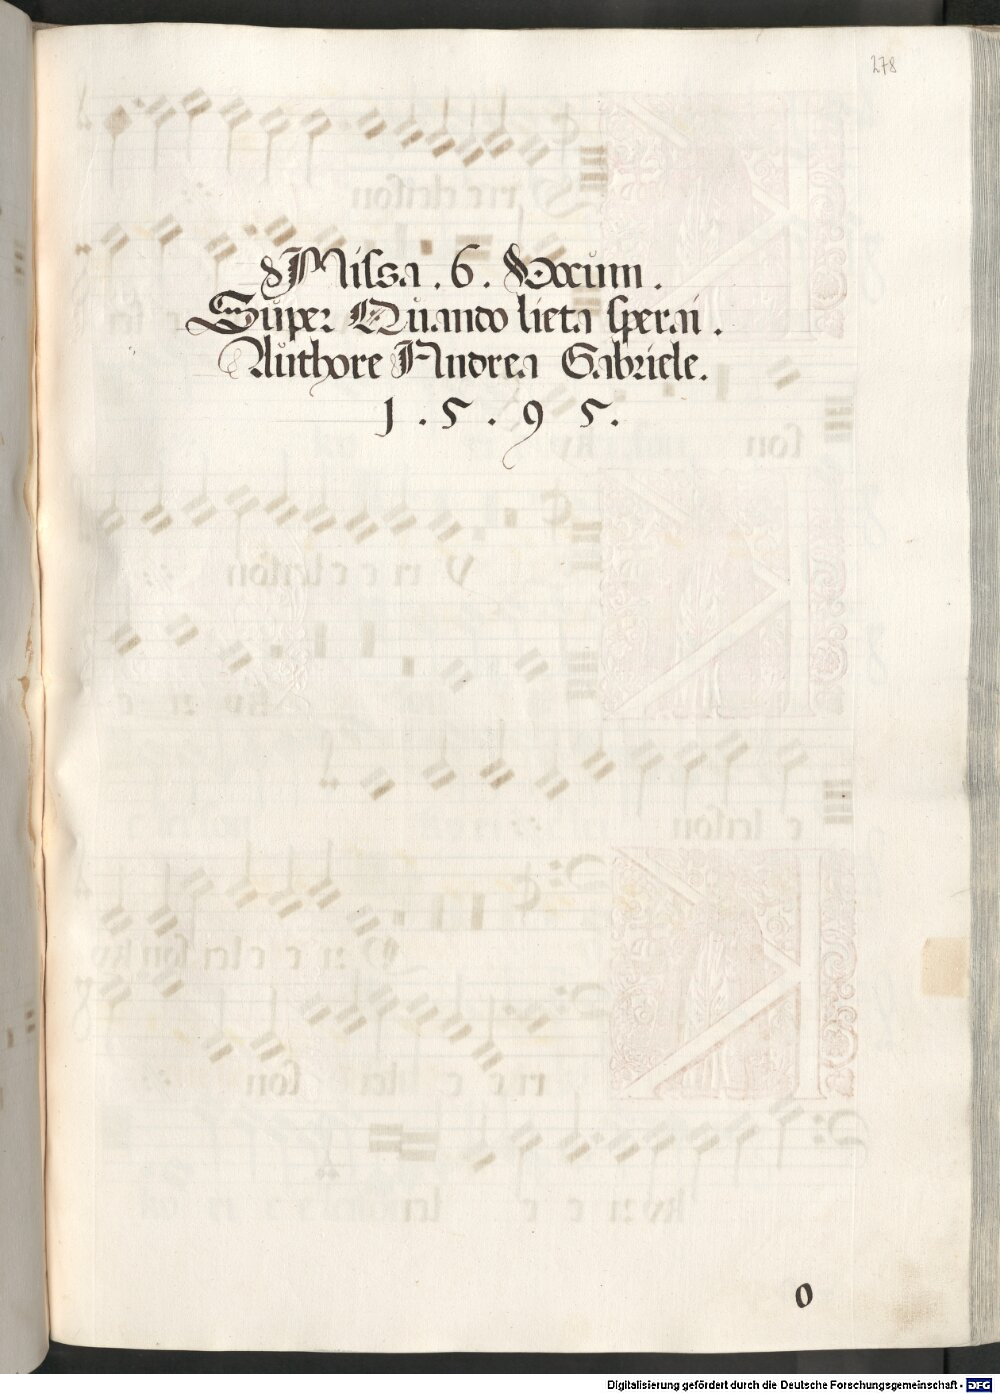 278
Missa . 6 . Vocum .
Super Quando lieta sperai .
Authore Andrea Gabriele .
1 . 5 . 9 5 .
0
Digitalisierung gefördert durch die Deutsche Forschungsgemeinschaft - DFG